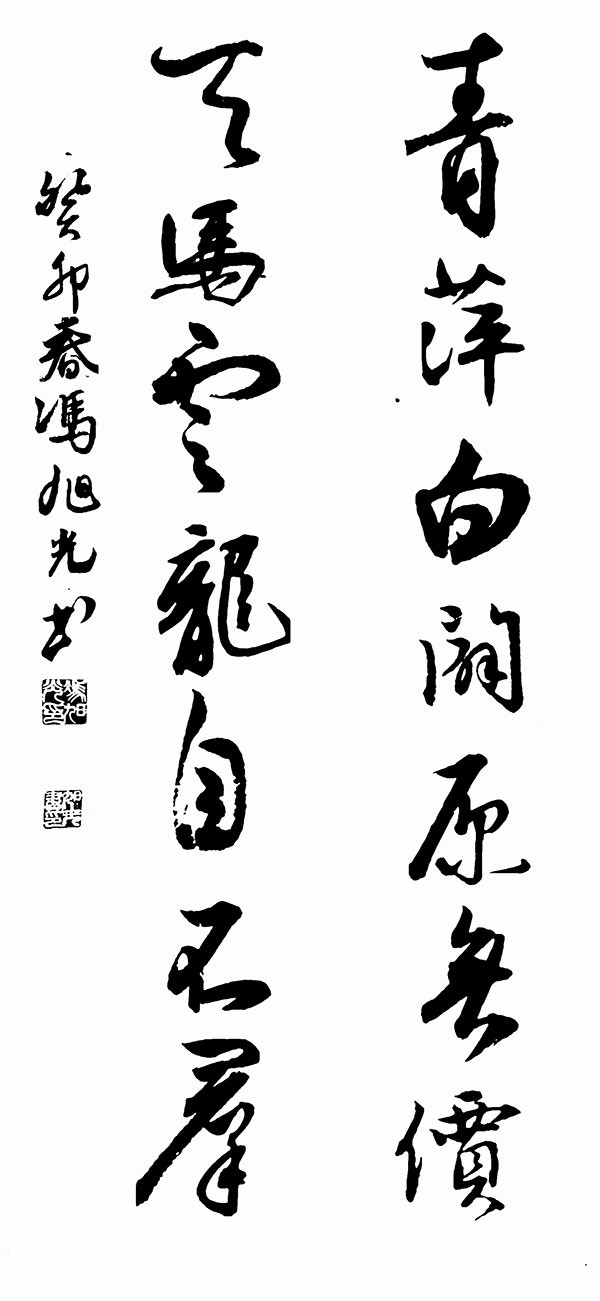 青萍白闢原無價
天馬雲龍自不羣
癸卯春馮旭光書